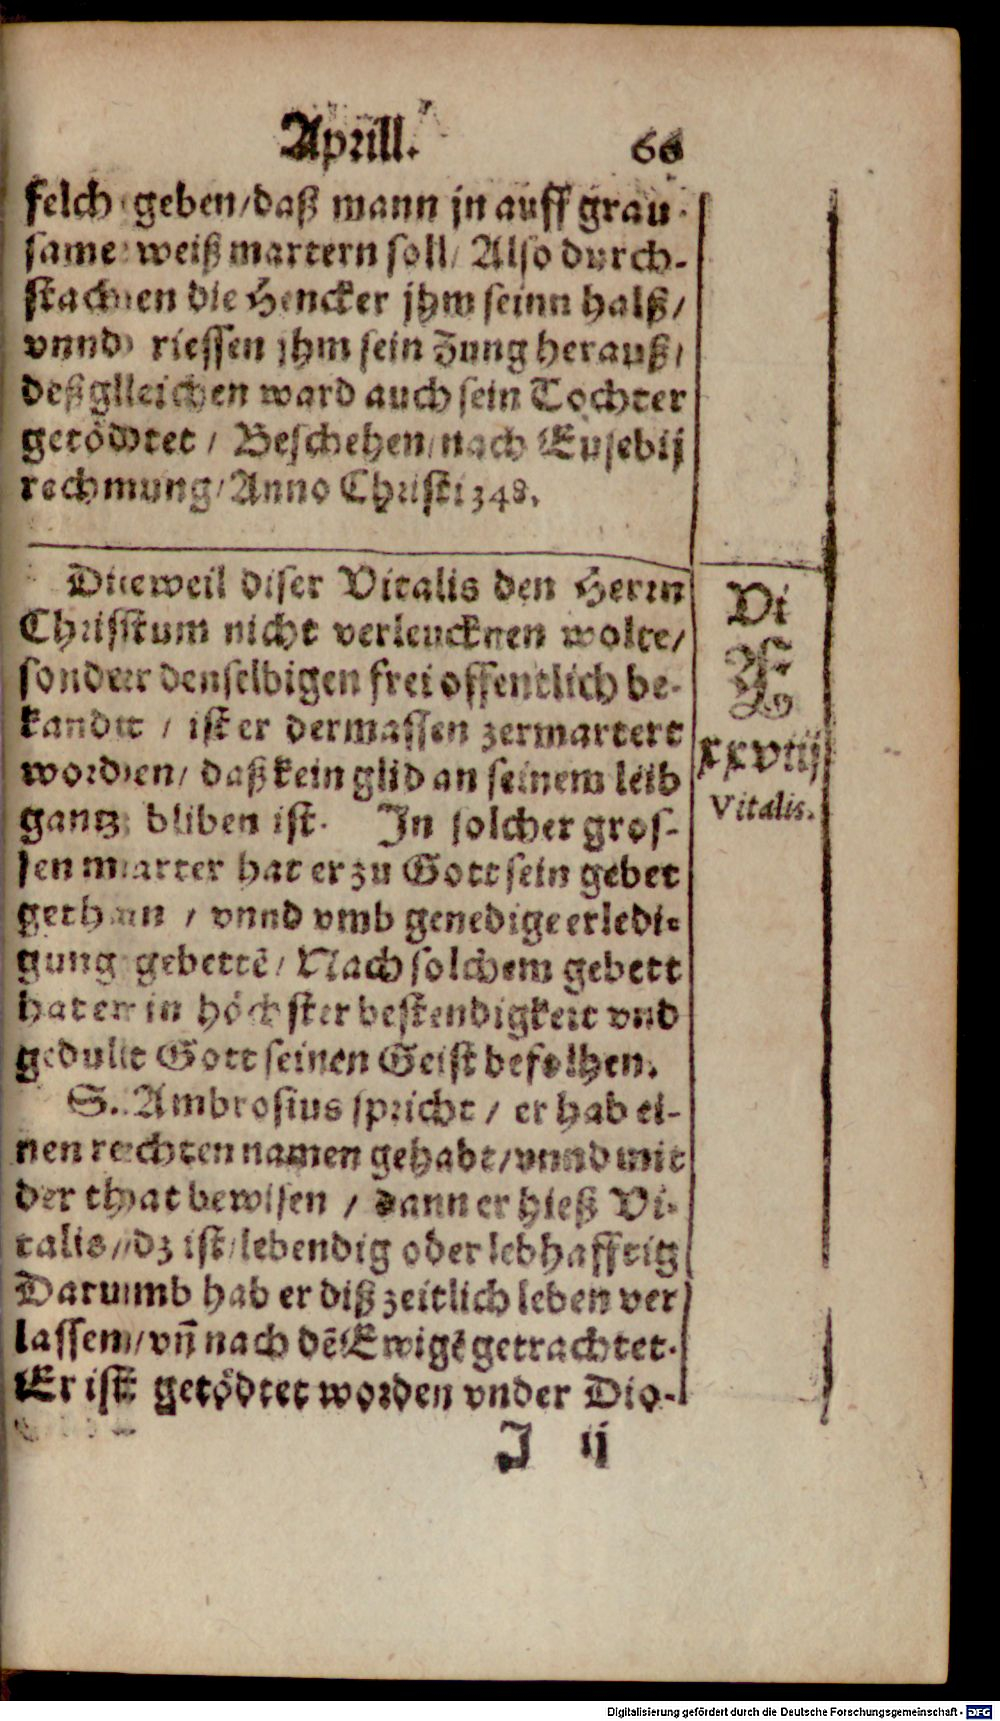 Aprill. 66
felch geben/daß mann jn auff grau-
same weiß martern soll/ Also durch-
stachen die Hencker jhm seinn halß/
vnnd riessen jhm sein Zung herauß/
deßgleichen ward auch sein Tochter
getödtet / Beschehen/nach Eusebij
rechnung/Anno Christi 348.
Dieweil diser Vitalis den Herrn
Christum nicht verleucknen wolte/
sonder denselbigen frei offentlich be-
kandt / ist er dermassen zermartert
worden/ daß kein glid an seinem leib
gantz bliben ist. In solcher gros-
sen marter hat er zu Gott sein gebet
gethan / vnnd vmb genedige erledi-
gung gebettē/ Nach solchem gebett
hat er in höchster bestendigkeit vnd
gedullt Gott seinen Geist befolhen.
S. Ambrosius spricht / er hab ei-
nen rechten namen gehabt/vnnd mit
der that bewisen / dann er hieß Vi-
talis//dz ist/lebendig oder lebhafftig
Darumb hab er diß zeitlich leben ver
lassen/vn̄ nach dē Ewigē getrachtet.
Er ist getödtet worden vnder Dio-
J ij
Vi
F
xxviij
Vitalis.
Digitalisierung gefördert durch die Deutsche Forschungsgemeinschaft - DFG